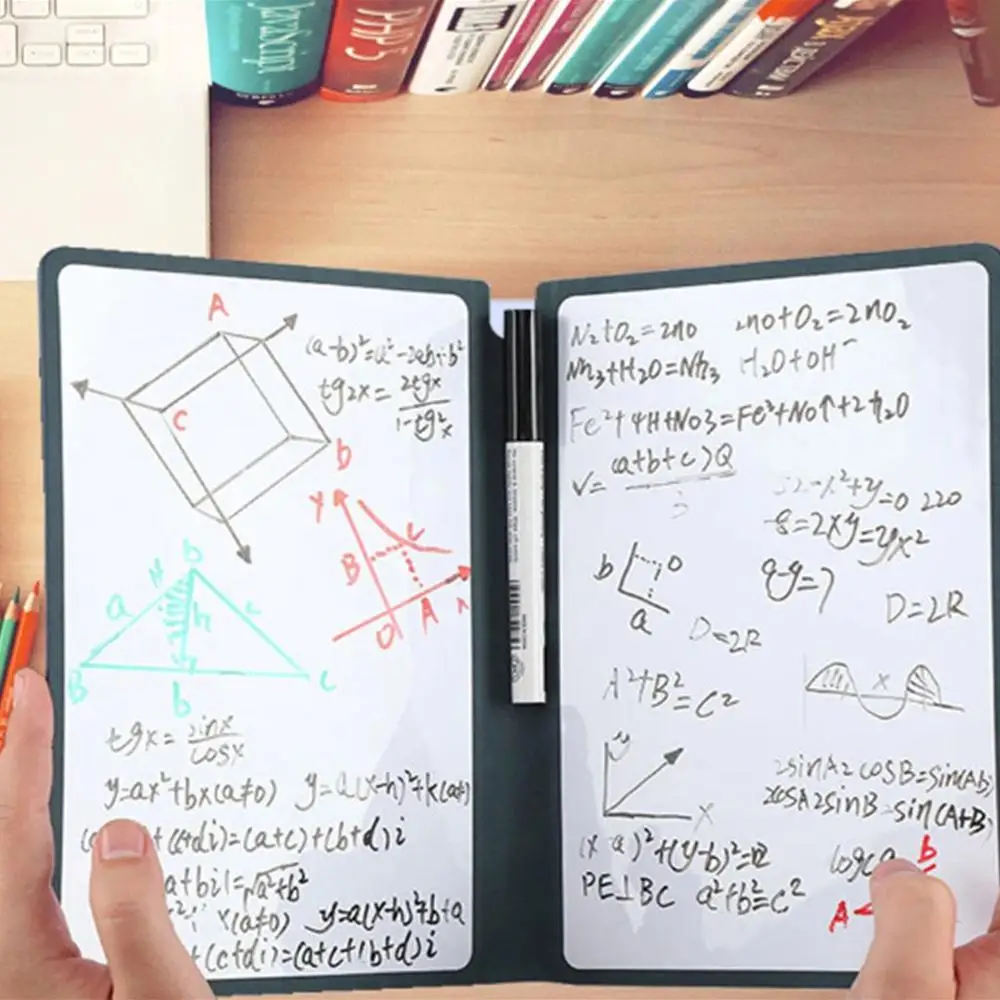 A
(a-b)²=a²-2ab+b²
tg2x=2tgx/1-tg²x
C
D
Y
C
B
O
A
x
b
H
a
h
c
B
b
C
tgx=sinx/cosx
y=ax²+bx(a≠0) y=a(x-h)²+k(a≠
+(c+di)=(a+c)+(b+d)i
a+bi|=√a²+b²
x(a≠0) y=a(x-h)²+b+a
+(c+di)=(a+c+(b+d)i
N₂+O₂=2no 2no+O₂=2nO₂
Nh₃+H₂O=Nh₃ H₂O+OH⁻
Fe²+4H+No3=Fe³+No↑+2h₂O
V=(a+b+c)Q
-x²+y=0 220
-8=2xy=yx²
b
O
a
8-y=7
D=2R
D=2R
A²+B²=C²
x
y
x
2sinA2cosB=sin(Ab)
2cosA2sinB=sin(A+B)
(x-a)²+(y-b)²=
PE⊥BC a²+b²=c²
b
A<